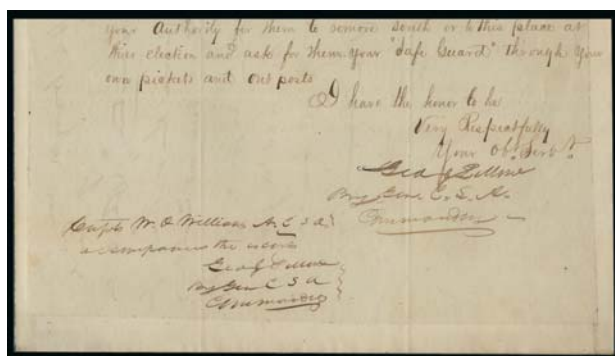 your Authority for them to remove South or to this place at
their election and ask for them your "Safe Guard" through your
own pickets and out posts
I have the honor to be
Very Respectfully
Your Obt. Servt.
Gid J Pillow
Brig Genl C. S. A.
Commander
Capt W. O Williams A, C S A
accompanies the escort
Gid J Pillow
Brig Gen C S A
Commander